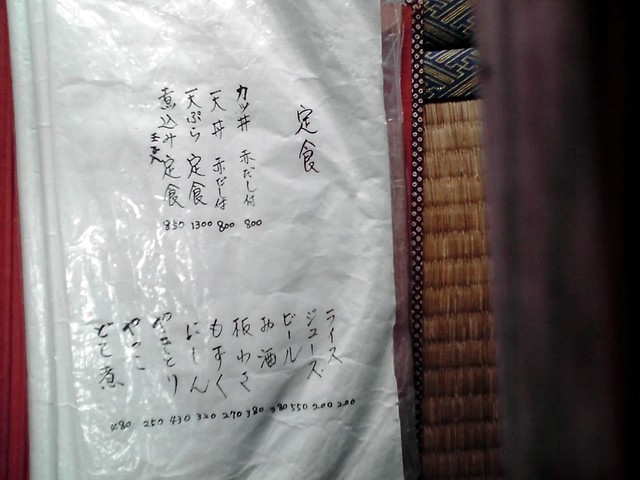 定食
カツ丼 赤だし付 800
天丼 赤だし付 800
天ぷら 定食 1300
煮込み 玉子入 定食 850
ライス 200
ジュース 200
ビール 550
お酒 380
板わさ 380
もずく 270
にしん 320
やきとり 430
やっこ 250
どて煮 480